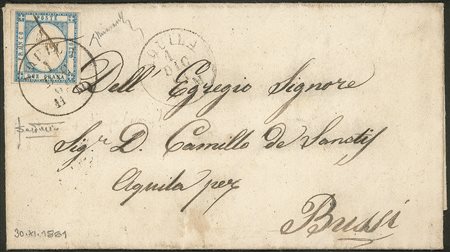 FRANCO
POSTE
DUE GRANA
AQUILA
1
DIC
Dell Egregio Signore
Sigr D. Camillo de Sanctis
Aquila per
Bussi
30-XI-1881